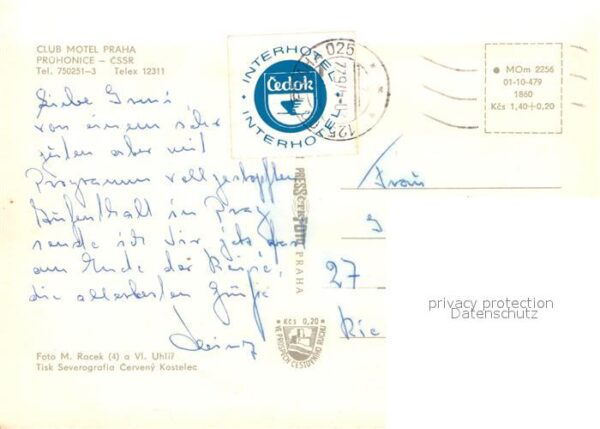 CLUB MOTEL PRAHA
PRŮHONICE – ČSSR
Tel. 750251-3 Telex 12311
INTERHOTEL
Čedok
INTERHOTEL
025
125
MOm 2256
01-10-479
1860
Kčs 1,40+0,20
Liebe
von einem sehr
aber mit
Programm vollgestopften
Aufenthalt in Prag
sende ich Dir jetzt
am Ende der
die allerbesten Grüße
Heinz
PRESSFOTO
PRAHA
27
privacy protection
Datenschutz
Kčs 0,20
VE PROSPĚCH CESTOVNÍHO RUCHU
Foto M. Racek (4) a Vl. Uhlíř
Tisk Severografia Červený Kostelec